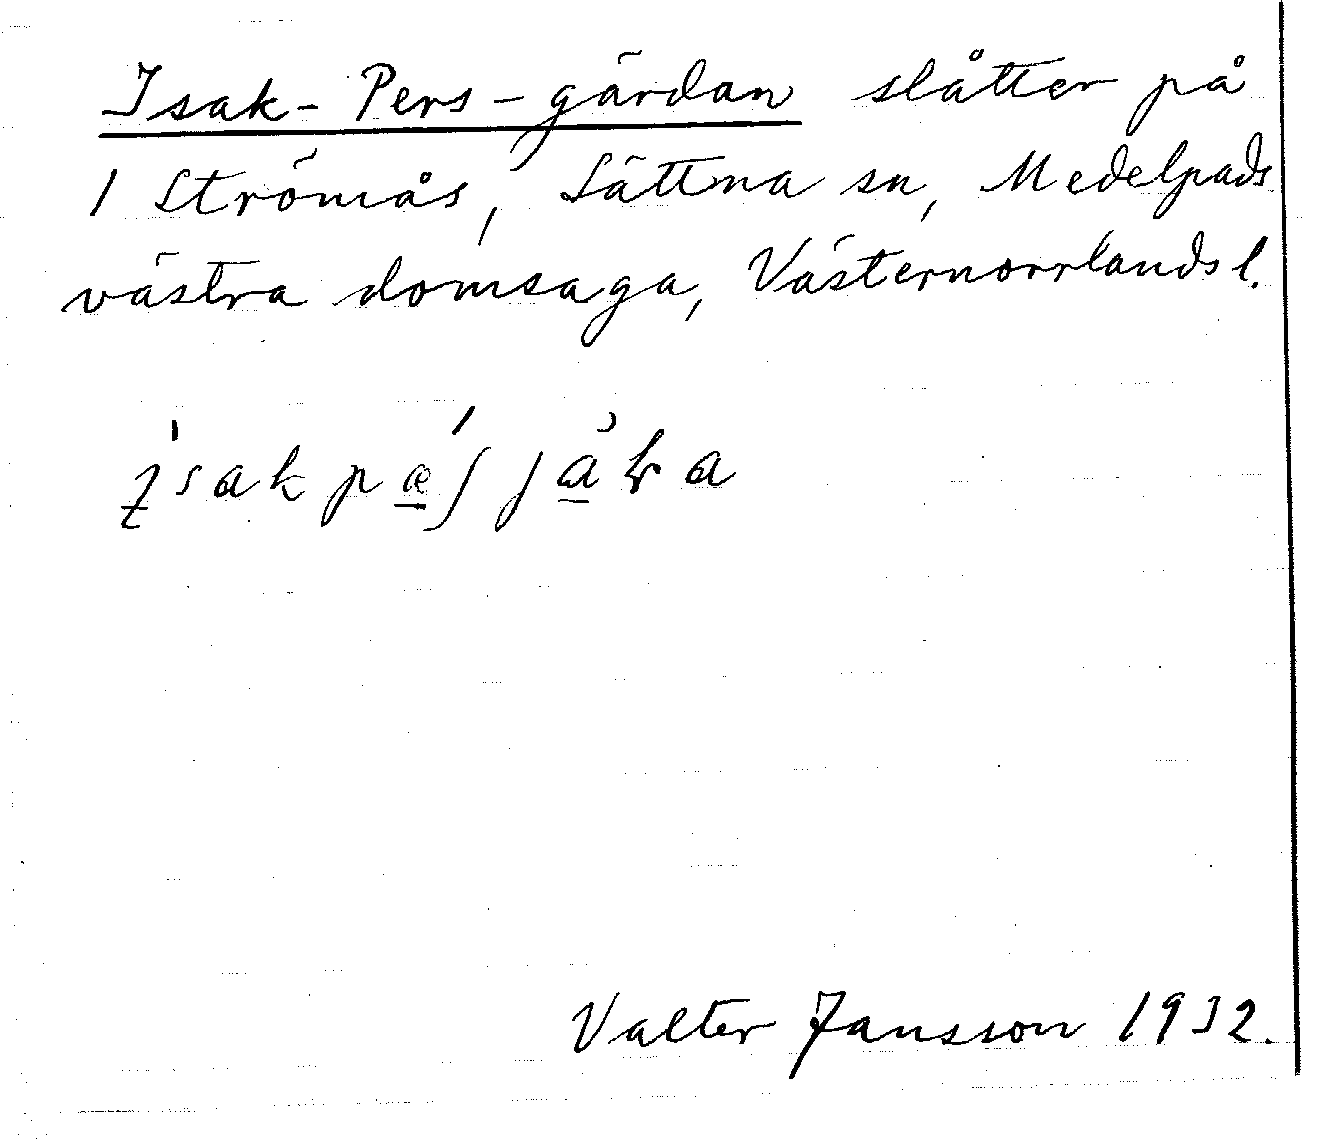 Isak-Pers-gärdan slåtter på
1 Strömås, Sättna sn, Medelpads
västra domsaga, Västernorrlands l.
Valter Jansson 1932.